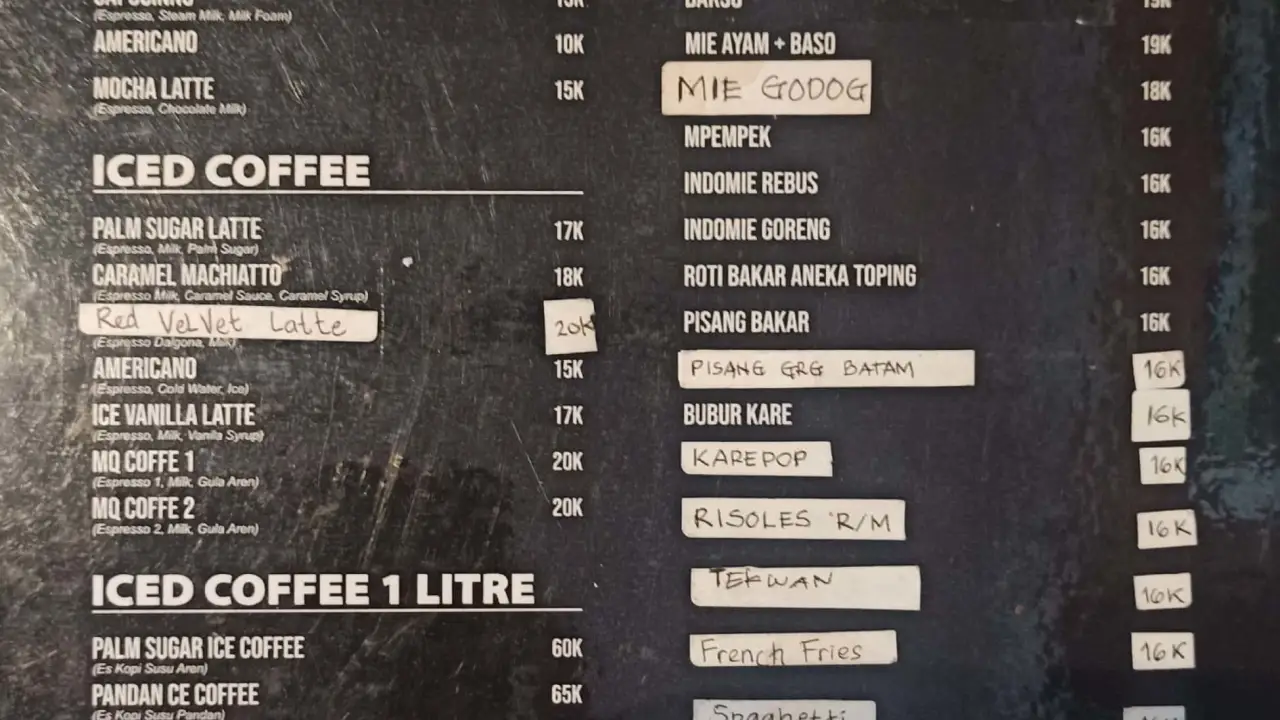 (Espresso, Steam Milk, Milk Foam)
AMERICANO 10K
MOCHA LATTE 15K
(Espresso, Chocolate Milk)
ICED COFFEE
PALM SUGAR LATTE 17K
(Espresso, Milk, Palm Sugar)
CARAMEL MACHIATTO 18K
(Espresso Milk, Caramel Sauce, Caramel Syrup)
Red VeLVet Latte 20K
(Espresso Dalgona, Milk)
AMERICANO 15K
(Espresso, Cold Water, Ice)
ICE VANILLA LATTE 17K
(Espresso, Milk, Vanila Syrup)
MQ COFFE 1 20K
(Espresso 1, Milk, Gula Aren)
MQ COFFE 2 20K
(Espresso 2, Milk, Gula Aren)
ICED COFFEE 1 LITRE
PALM SUGAR ICE COFFEE 60K
(Es Kopi Susu Aren)
PANDAN CE COFFEE 65K
(Es Kopi Susu Pandan)
MIE AYAM + BASO 19K
MIE GODOG 18K
MPEMPEK 16K
INDOMIE REBUS 16K
INDOMIE GORENG 16K
ROTI BAKAR ANEKA TOPING 16K
PISANG BAKAR 16K
PISANG GRG BATAM 16K
BUBUR KARE 16K
KAREPOP 16K
RISOLES R/M 16K
TEKWAN 16K
French Fries 16K
Spaghetti